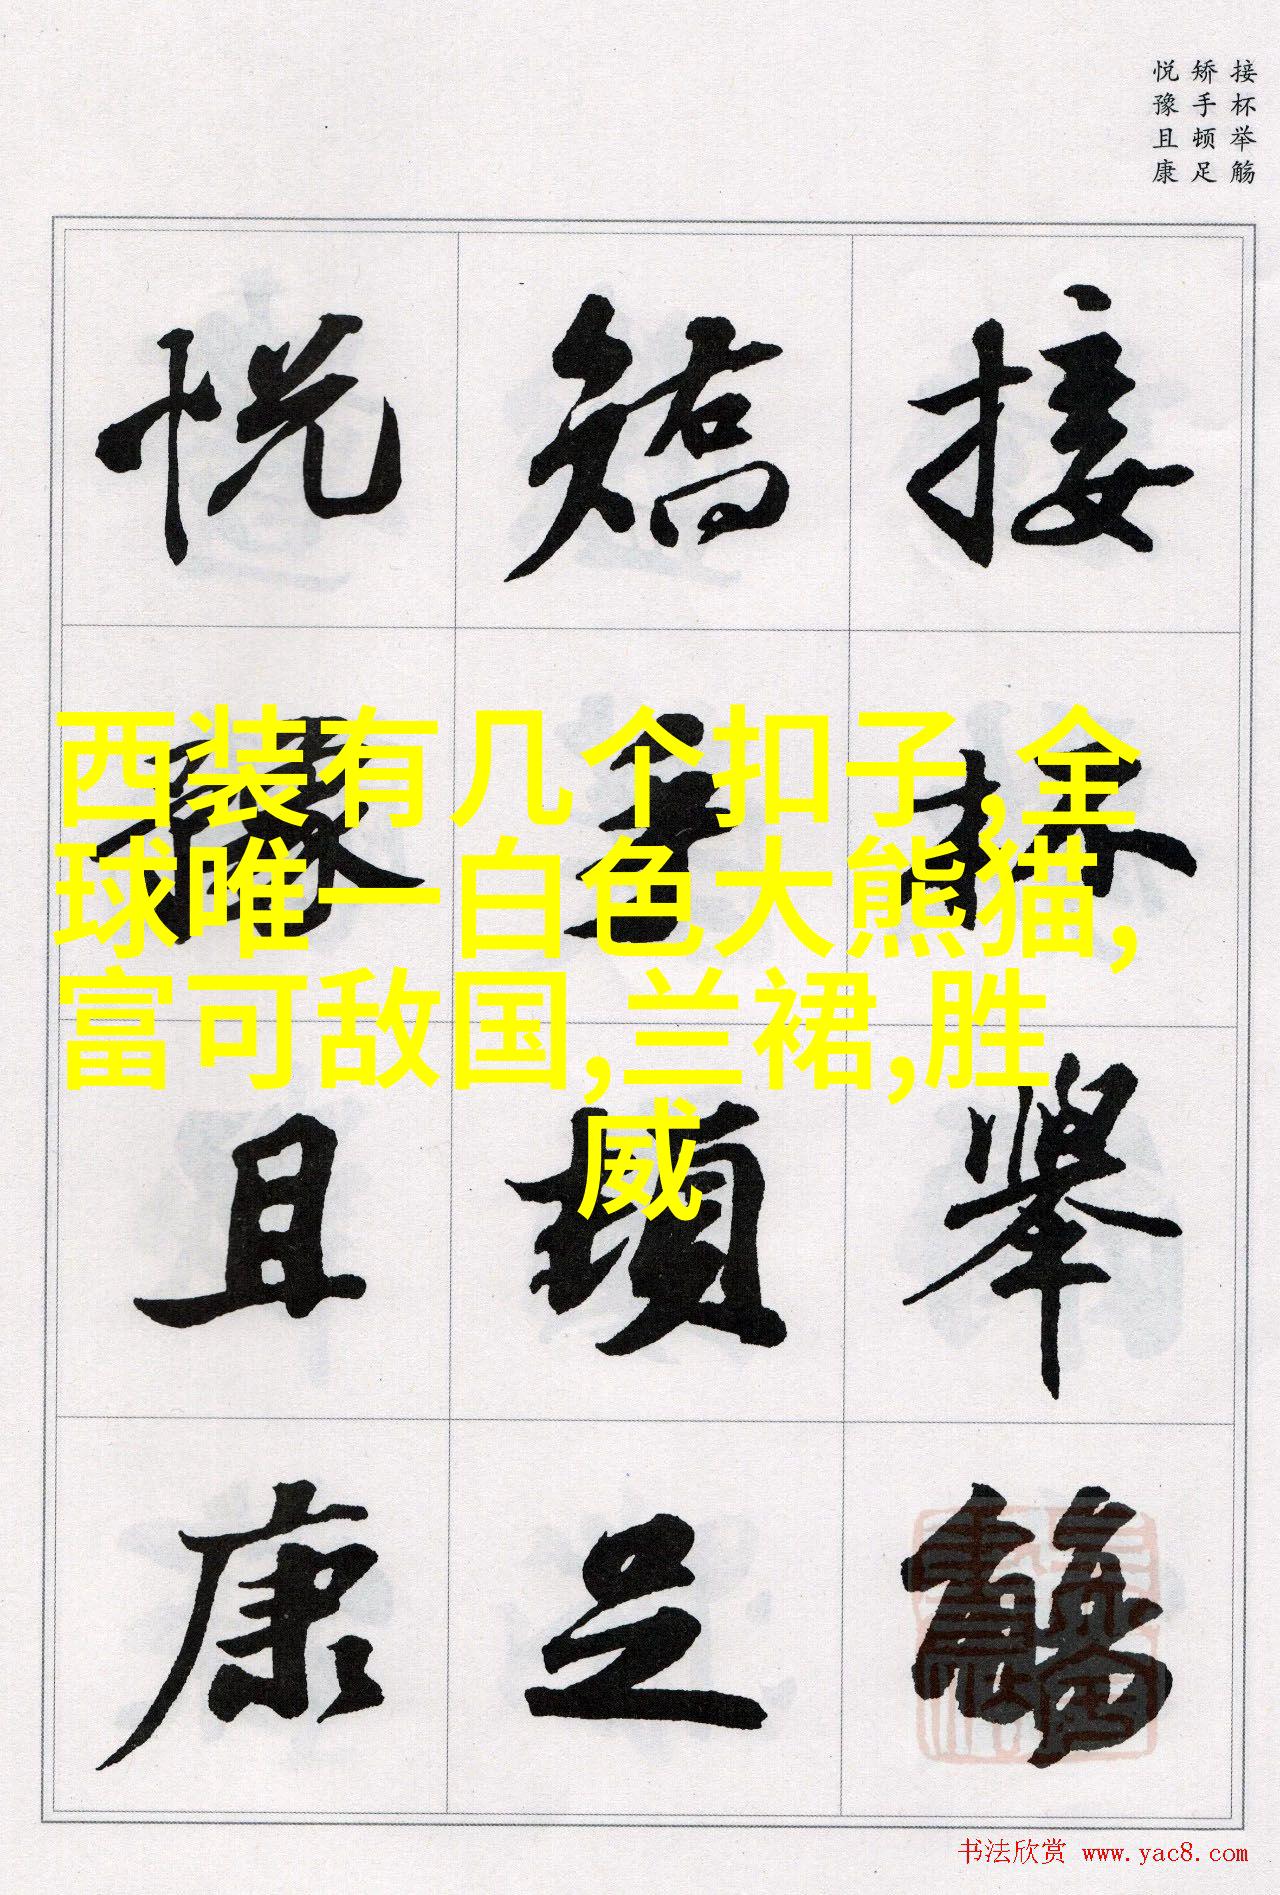 接杯举觞
矫手顿足
悦豫且康
接杯舉觴
矯手頓足
悦豫且康
西装有几个扣子,全
球唯一白色大熊猫,
富可敌国,兰裙,胜
威
书法欣赏 www.yac8.com